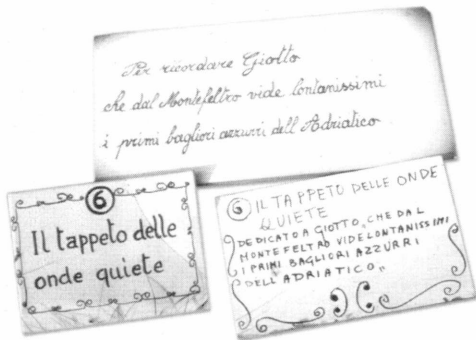 Per ricordare Giotto
che dal Montefeltro vide lontanissimi
i primi bagliori azzurri dell'Adriatico
6
Il tappeto delle
onde quiete
6 IL TAPPETO DELLE ONDE
QUIETE
DEDICATO A GIOTTO, CHE DAL
MONTEFELTRO VIDE LONTANISSIMI
I PRIMI BAGLIORI AZZURRI
DELL'ADRIATICO"